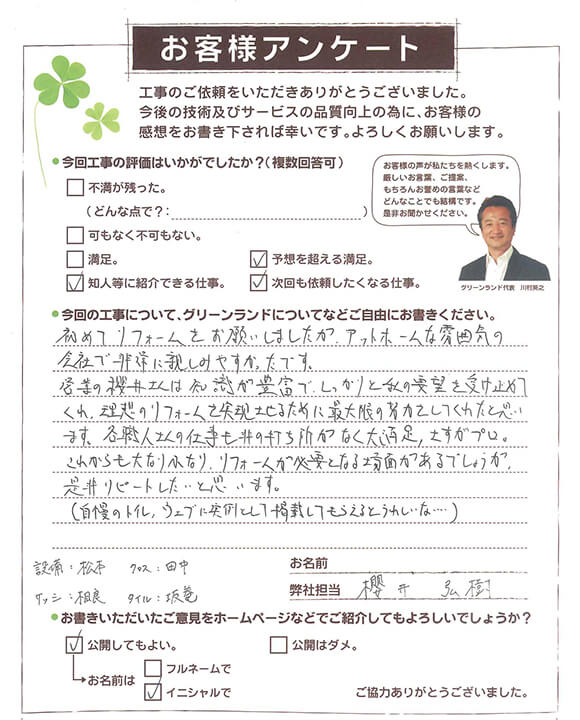 お客様アンケート
工事のご依頼をいただきありがとうございました。
今後の技術及びサービスの品質向上の為に、お客様の
感想をお書き下されば幸いです。よろしくお願いします。
今回工事の評価はいかがでしたか?(複数回答可)
不満が残った。
(どんな点で?: )
可もなく不可もない。
満足。
予想を超える満足。
知人等に紹介できる仕事。
次回も依頼したくなる仕事。
お客様の声が私たちを熱くします。
厳しいお言葉、ご提案、
もちろんお誉めの言葉など
どんなことでも結構です。
是非お聞かせください。
グリーンランド代表 川村英之
今回の工事について、グリーンランドについてなどご自由にお書きください。
初めてリフォームをお願いしましたが、アットホームな雰囲気の
会社で非常に親しみやすかったです。
営業の櫻井さんは知識が豊富で、しっかりと私の要望を受け止めて
くれ、理想のリフォームを実現させるために最大限の努力をしてくれたと思い
ます。各職人さんの仕事も非の打ち所がなく大満足、さすがプロ。
これからも大なり小なり、リフォームが必要となる場面があるでしょうが、
是非リピートしたいと思います。
(自慢のトイレ、ウェブに実例として掲載してもらえるとうれしいな…)
設備:松本 クロス:田中
サッシ:相良 タイル:坂巻
お名前
弊社担当 櫻井 弘樹
お書きいただいたご意見をホームページなどでご紹介してもよろしいでしょうか?
公開してもよい。
公開はダメ。
お名前は
フルネームで
イニシャルで
ご協力ありがとうございました。